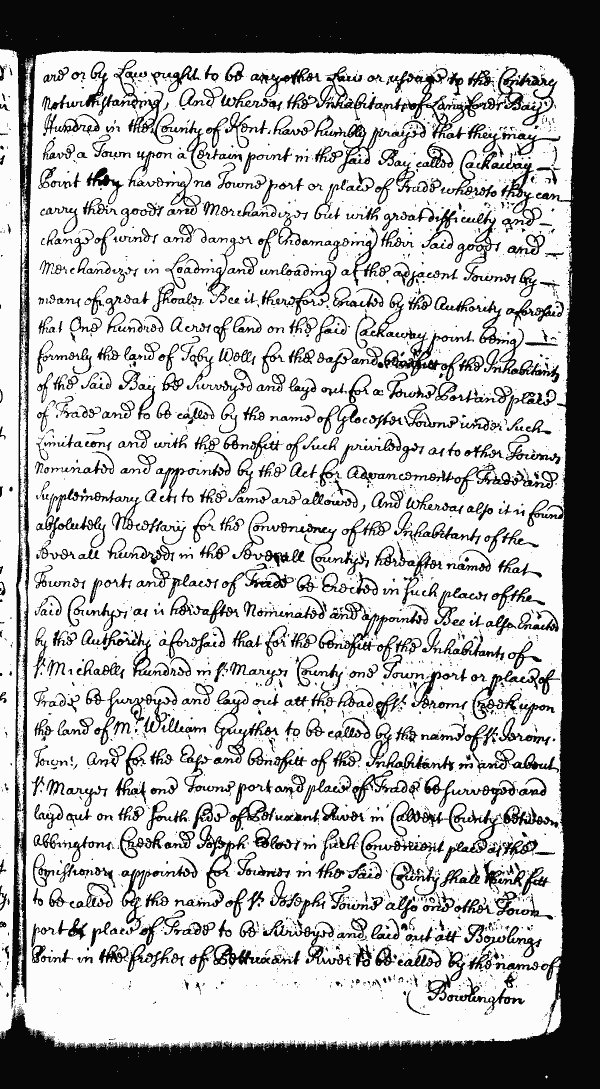 are or by Law ought to be any other Law or useage to the Contrary
Notwithstanding, And Whereas the Inhabitants of Langfords Bay
Hundred in the County of Kent have humbly prayed that they may
have a Town upon a Certain point in the said Bay called Cackaway
Point they haveing no Towne port or place of Trade whereto they can
carry their goods and Merchandizes but with great difficulty and
change of winds and danger of Endamageing their said goods and
Merchandizes in Loading and unloading at the adjacent Townes by
means of great Shoales Bee it therefore Enacted by the Authority aforesaid
that One hundred Acres of land on the said Cackaway point being
formerly the land of Toby Wells for the ease and benefitt of the Inhabitants
of the Said Bay be Surveyed and layd out for a Towne Port and place
of Trade and to be called by the name of Glocester Towne under such
Limitacons and with the benefitt of such priviledges as to other Townes
Nominated and appointed by the Act for Advancement of Trade and
Supplementary Acts to the Same are allowed, And Whereas also it is found
absolutely Necessary for the Conveniency of the Inhabitants of the
severall hundreds in the Severall Countyes hereafter named that
Townes ports and places of Trade be Erected in such places of the
said Countyes as is hereafter Nominated and appointed Bee it also Enacted
by the Authority aforesaid that for the benefitt of the Inhabitants of
St. Michaells hundred in St. Maryes County one Town port or place of
Trade be surveyed and layd out att the head of St. Jeroms Creek upon
the land of Mr. William Guyther to be called by the name of St. Jeroms
Town, And for the Ease and benefitt of the Inhabitants in and about
St. Maryes that one Towne port and place of Trade be surveyed and
layd out on the South side of Petuxant River in Calvert County between
Abbingtons Creek and Joseph in such Convenient place as the
Comissioners appointed for Townes in the Said County shall think fitt
to be called by the name of St. Josephs Towne also one other Town
port & place of Trade to be Surveyed and laid out att Bowlings
Point in the freshes of Pettuxant River to be called by the name of
Bowlington